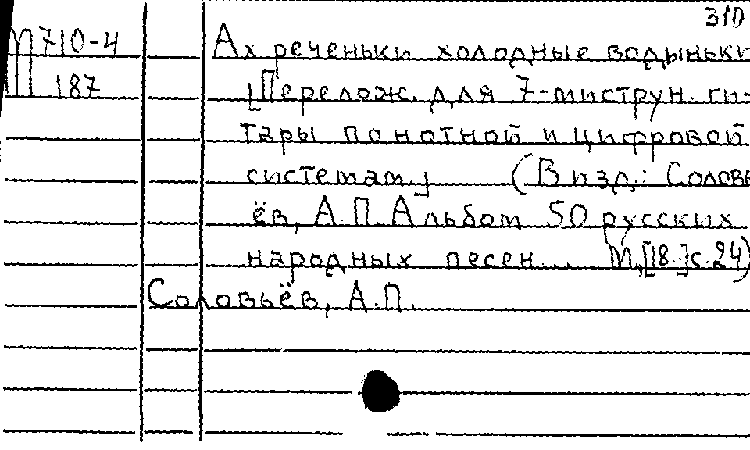 310
М 710-4
187
Ах реченьки холодные водыньки
[Перелож. для 7-миструн. ги-
тары по нотной и цифровой
системам.] (В изд.: Соловь
ёв, А.П. Альбом 50 русских
народных песен... М, [18..] с. 24)
Соловьёв, А.П.